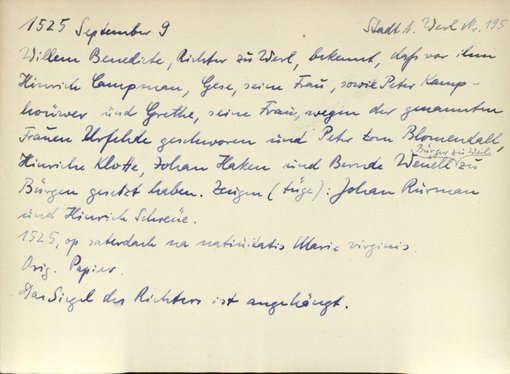 1525 September 9 Stadt A. Werl Nr. 195
Willem Benedicte, Richter zu Werl, bekennt, daß vor ihm
Hinrich Campman, Gese, seine Frau, sowie Peter Kamp-
houwer und Grethe, seine Frau, wegen der genannten
Frauen Urfehde geschworen und Peter tom Blomendall,
Hinriche Klotte, Johan Haken und Bernde Wenell zu
Bürger zu
Bürgen gesetzt haben. Zeugen (tüge): Johan Rurman
und Hinrich Schreue.
1525, op saterdach na natiuitatis Marie virginis.
Orig. Papier.
Das Siegel des Richters ist angehängt.